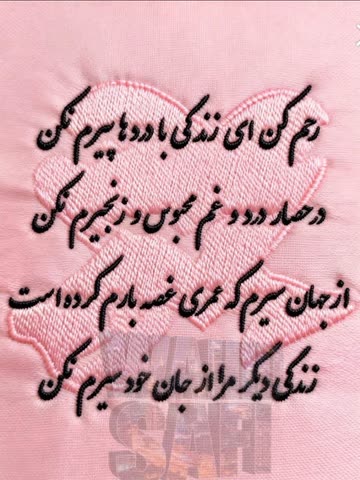 رحم کن ای زندگی با دردها پیرم نکن
در حصار درد و غم محبوس و زنجیرم نکن
از جهان سیرم که عمری غصه بارم کرده است
زندگی دیگر مرا از جان خود سیرم نکن
WAHI
SAH